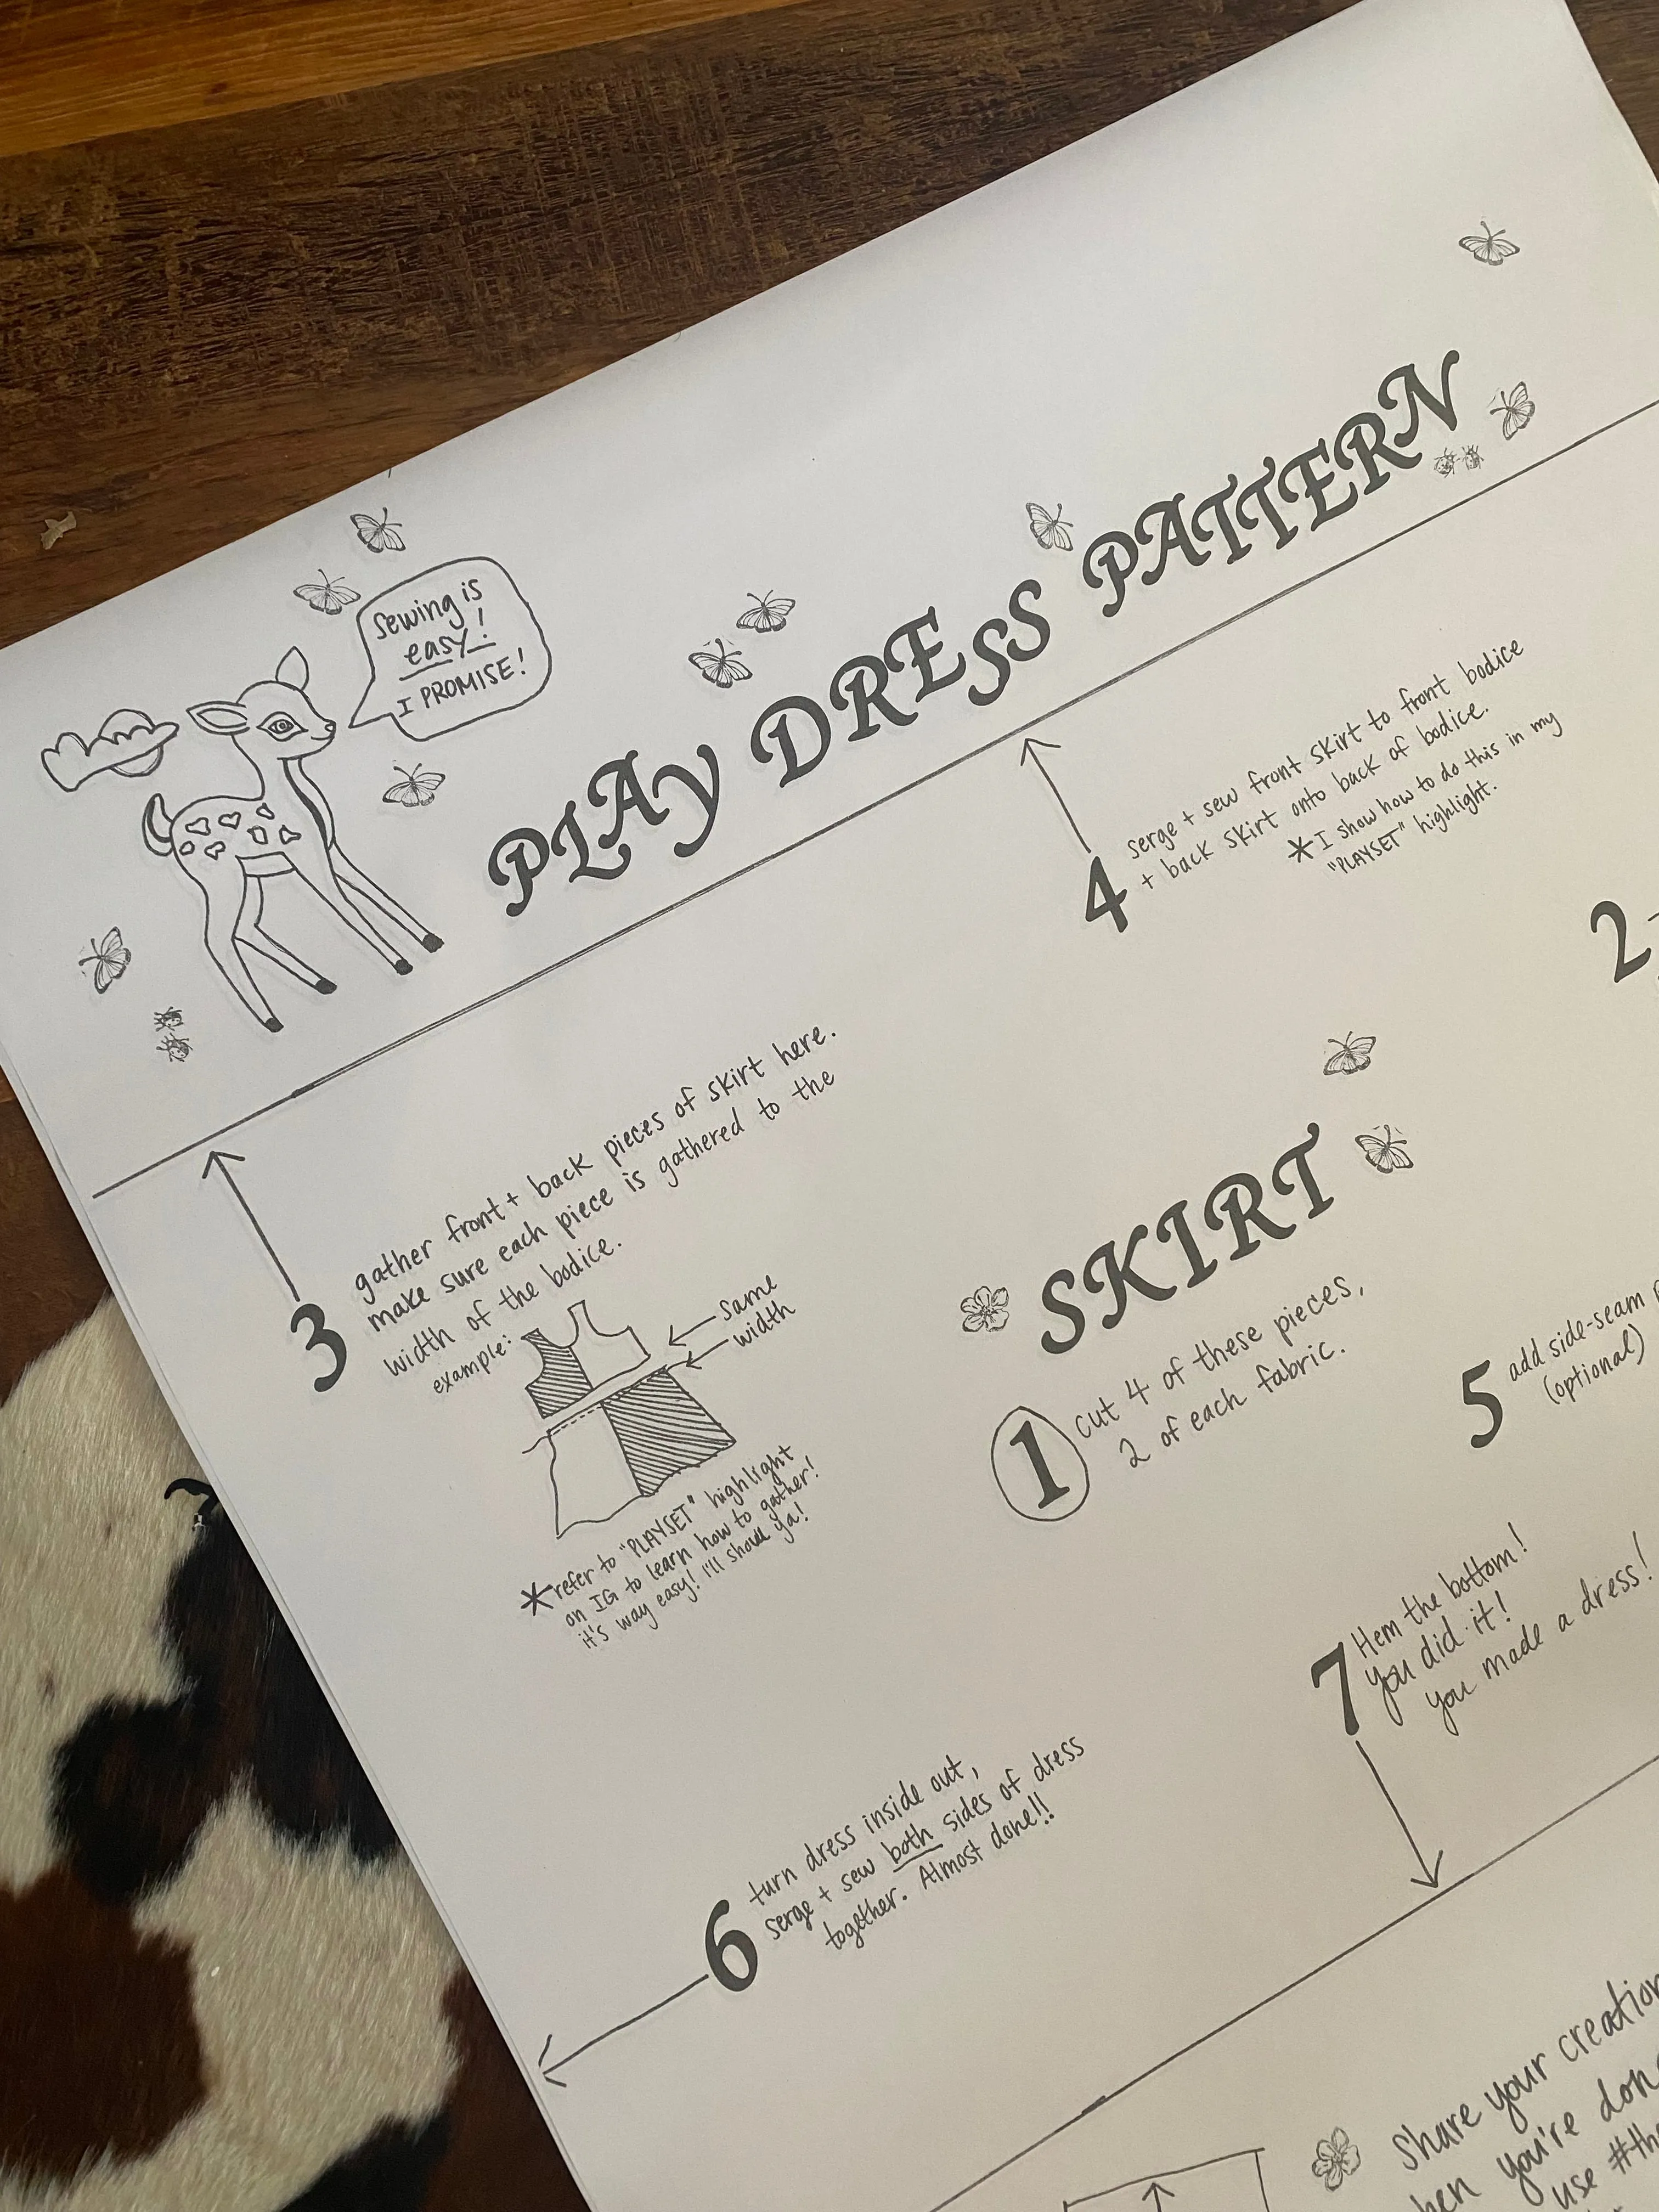 sewing is
easy!
I PROMISE!
PLAY DRESS PATTERN
4
serge + sew front skirt to front bodice
+ back skirt onto back of bodice.
*I show how to do this in my
"PLAYSET" highlight.
2
3
gather front + back pieces of skirt here.
make sure each piece is gathered to the
width of the bodice.
example:
same
width
*refer to "PLAYSET" highlight
on IG to learn how to gather!
it's way easy! I'll show ya!
SKIRT
1
cut 4 of these pieces,
2 of each fabric.
5
add side-seam
(optional)
7
Hem the bottom!
you did it!
you made a dress!
6
turn dress inside out,
serge + sew both sides of dress
together. Almost done!!
Share your creation
you're
use